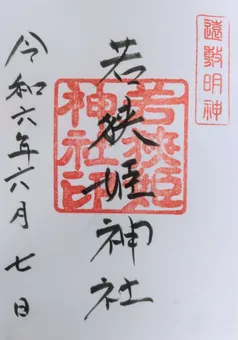 遠敷明神
若狭姫神社
若狭姫神社印
令和六年六月七日